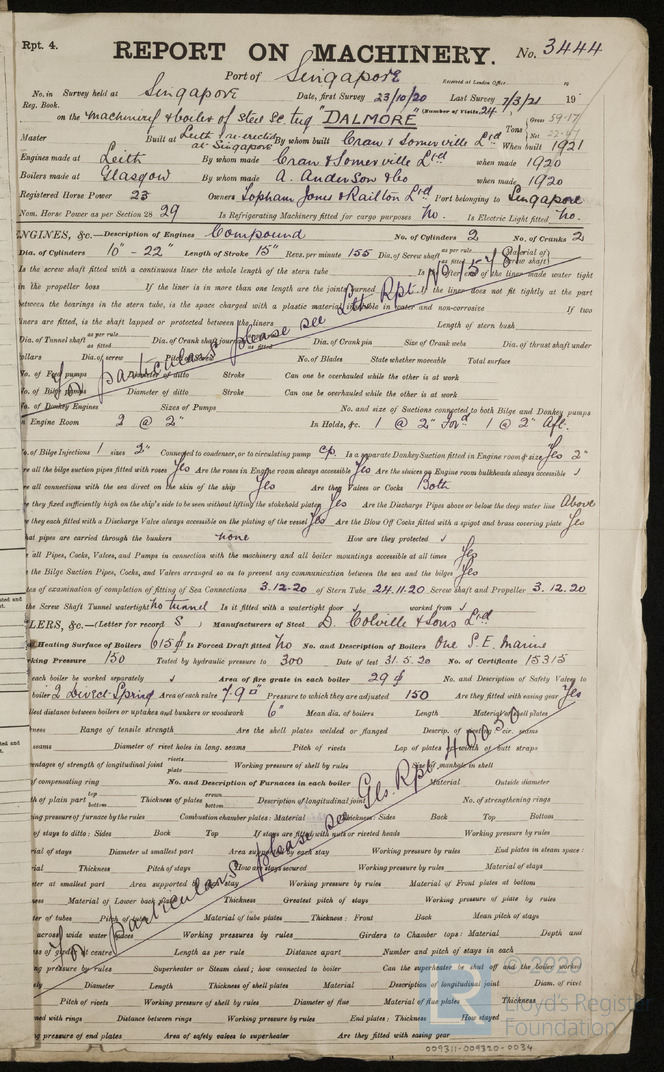 Rpt. 4.
REPORT ON MACHINERY. No. 3444
Port of Singapore
Received at London Office
No. in Survey held at Singapore Date, first Survey 23/10/20 Last Survey 7/3/21 19
Reg. Book.
(Number of Visits 24)
on the machinery & boiler of steel Sc tug "DALMORE" Tons Gross 59.17 Net 22.47
Master Built at Leith re-erected at Singapore By whom built Cran & Somerville Ltd When built 1921
Engines made at Leith By whom made Cran & Somerville Ltd when made 1920
Boilers made at Glasgow By whom made A. Anderson & Co when made 1920
Registered Horse Power 23 Owners Topham Jones & Railton Ltd Port belonging to Singapore
Nom. Horse Power as per Section 28 29 Is Refrigerating Machinery fitted for cargo purposes No. Is Electric Light fitted No.
ENGINES, &c.—Description of Engines Compound No. of Cylinders 2 No. of Cranks 2
Dia. of Cylinders 10" - 22" Length of Stroke 15" Revs. per minute 155 Dia. of Screw shaft as per rule as fitted Material of screw shaft
Is the screw shaft fitted with a continuous liner the whole length of the stern tube Is the after end of the liner made water tight
in the propeller boss If the liner is in more than one length are the joints burned If the liner does not fit tightly at the part
between the bearings in the stern tube, is the space charged with a plastic material insoluble in water and non-corrosive If two
liners are fitted, is the shaft lapped or protected between the liners Length of stern bush
Dia. of Tunnel shaft as per rule as fitted Dia. of Crank shaft journals as per rule as fitted Dia. of Crank pin Size of Crank webs Dia. of thrust shaft under
collars Dia. of screw Pitch of Screw No. of Blades State whether moveable Total surface
No. of Feed pumps Diameter of ditto Stroke Can one be overhauled while the other is at work
No. of Bilge pumps Diameter of ditto Stroke Can one be overhauled while the other is at work
For particulars please see Lth Rpt. No 15781
No. of Donkey Engines Sizes of Pumps No. and size of Suctions connected to both Bilge and Donkey pumps
In Engine Room 2 @ 2" In Holds, &c. 1 @ 2" Ford 1 @ 2" Aft.
No. of Bilge Injections 1 sizes 2" Connected to condenser, or to circulating pump C.P. Is a separate Donkey Suction fitted in Engine room & size Yes 2"
are all the bilge suction pipes fitted with roses Yes Are the roses in Engine room always accessible Yes Are the sluices on Engine room bulkheads always accessible ✓
are all connections with the sea direct on the skin of the ship Yes Are they Valves or Cocks Both
are they fixed sufficiently high on the ship's side to be seen without lifting the stokehold plates Yes Are the Discharge Pipes above or below the deep water line Above
are they each fitted with a Discharge Valve always accessible on the plating of the vessel Yes Are the Blow Off Cocks fitted with a spigot and brass covering plate Yes
what pipes are carried through the bunkers none How are they protected ✓
are all Pipes, Cocks, Valves, and Pumps in connection with the machinery and all boiler mountings accessible at all times Yes
are the Bilge Suction Pipes, Cocks, and Valves arranged so as to prevent any communication between the sea and the bilges Yes
Dates of examination of completion of fitting of Sea Connections 3.12.20 of Stern Tube 24.11.20 Screw shaft and Propeller 3.12.20
Is the Screw Shaft Tunnel watertight no tunnel Is it fitted with a watertight door ✓ worked from ✓
BOILERS, &c.—(Letter for record S) Manufacturers of Steel D. Colville & Sons Ltd
Heating Surface of Boilers 615 ▫ Is Forced Draft fitted No No. and Description of Boilers One S.E. Marine
Working Pressure 150 Tested by hydraulic pressure to 300 Date of test 31.5.20 No. of Certificate 15315
each boiler be worked separately ✓ Area of fire grate in each boiler 29 ▫ No. and Description of Safety Valves to
boiler 2 Direct Spring Area of each valve 7.9 ▫" Pressure to which they are adjusted 150 Are they fitted with easing gear Yes
smallest distance between boilers or uptakes and bunkers or woodwork 6" Mean dia. of boilers Length Material of shell plates
Range of tensile strength Are the shell plates welded or flanged Descrip. of riveting: cir. seams
seams Diameter of rivet holes in long. seams Pitch of rivets Lap of plates or width of butt straps
percentages of strength of longitudinal joint rivets plate Working pressure of shell by rules Size of manhole in shell
of compensating ring No. and Description of Furnaces in each boiler Material Outside diameter
Length of plain part top bottom Thickness of plates crown bottom Description of longitudinal joint No. of strengthening rings
Working pressure of furnace by the rules Combustion chamber plates: Material Thickness: Sides Back Top Bottom
of stays to ditto: Sides Back Top If stays are fitted with nuts or riveted heads Working pressure by rules
Material of stays Diameter at smallest part Area supported by each stay Working pressure by rules End plates in steam space:
Material Thickness Pitch of stays How are stays secured Working pressure by rules Material of stays
Diameter at smallest part Area supported by each stay Working pressure by rules Material of Front plates at bottom
Thickness Material of Lower back plate Thickness Greatest pitch of stays Working pressure of plate by rules
Diameter of tubes Pitch of tubes Material of tube plates Thickness: Front Back Mean pitch of stays
across wide water spaces Working pressures by rules Girders to Chamber tops: Material Depth and
thickness of girder at centre Length as per rule Distance apart Number and pitch of stays in each
Working pressure by rules Superheater or Steam chest; how connected to boiler Can the superheater be shut off and the boiler worked
separately Diameter Length Thickness of shell plates Material Description of longitudinal joint Diam. of rivet
Pitch of rivets Working pressure of shell by rules Diameter of flue Material of flue plates Thickness
stiffened with rings Distance between rings Working pressure by rules End plates: Thickness How stayed
Working pressure of end plates Area of safety valves to superheater Are they fitted with easing gear
For particulars please see Gls. Rpt 40050
© 2020
Lloyd's Register
Foundation
009311-009320-0034